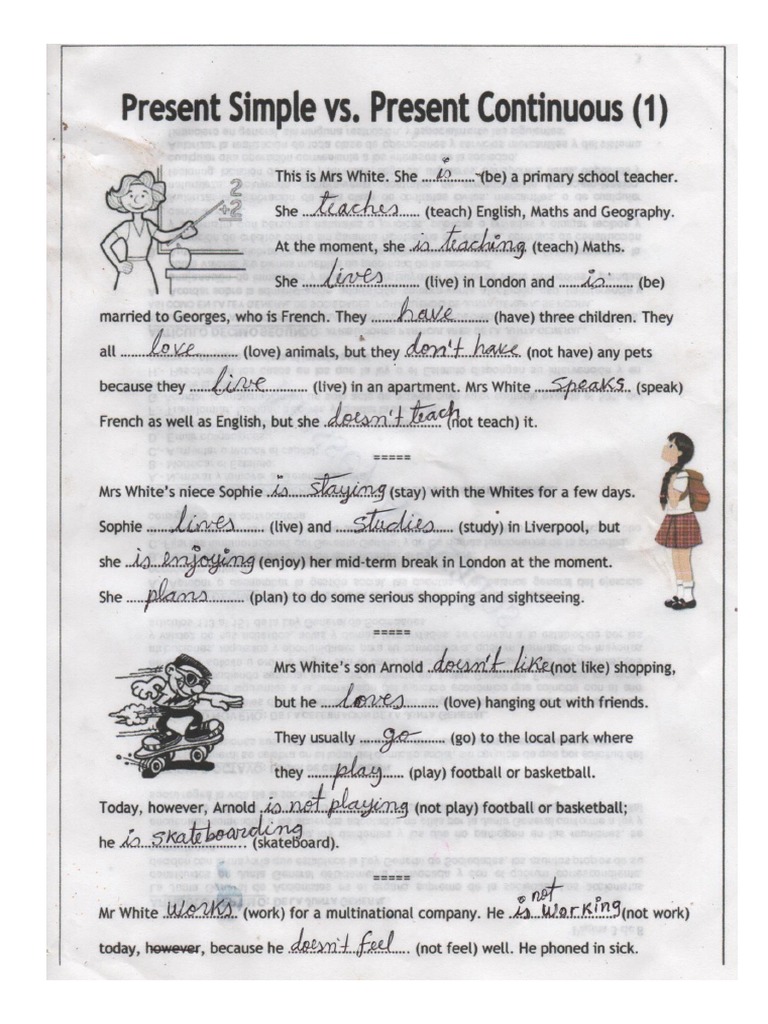 Present Simple vs. Present Continuous (1)
This is Mrs White. She ....is....... (be) a primary school teacher.
2
+2
She ...teaches..... (teach) English, Maths and Geography.
At the moment, she is teaching (teach) Maths.
She ......lives.......... (live) in London and .......is....... (be)
married to Georges, who is French. They ......have........ (have) three children. They
all ......love.......... (love) animals, but they don't have (not have) any pets
because they ......live.......... (live) in an apartment. Mrs White ...speaks.. (speak)
French as well as English, but she doesn't teach (not teach) it.
=====
Mrs White's niece Sophie is staying (stay) with the Whites for a few days.
Sophie ......lives.......... (live) and ....studies..... (study) in Liverpool, but
she is enjoying (enjoy) her mid-term break in London at the moment.
She ...plans.......... (plan) to do some serious shopping and sightseeing.
=====
Mrs White's son Arnold doesn't like (not like) shopping,
but he ...loves......... (love) hanging out with friends.
They usually .....go.......... (go) to the local park where
they ......play...... (play) football or basketball.
Today, however, Arnold is not playing (not play) football or basketball;
he is skateboarding (skateboard).
=====
Mr White works (work) for a multinational company. He is not working (not work)
today, however, because he doesn't feel ... (not feel) well. He phoned in sick.